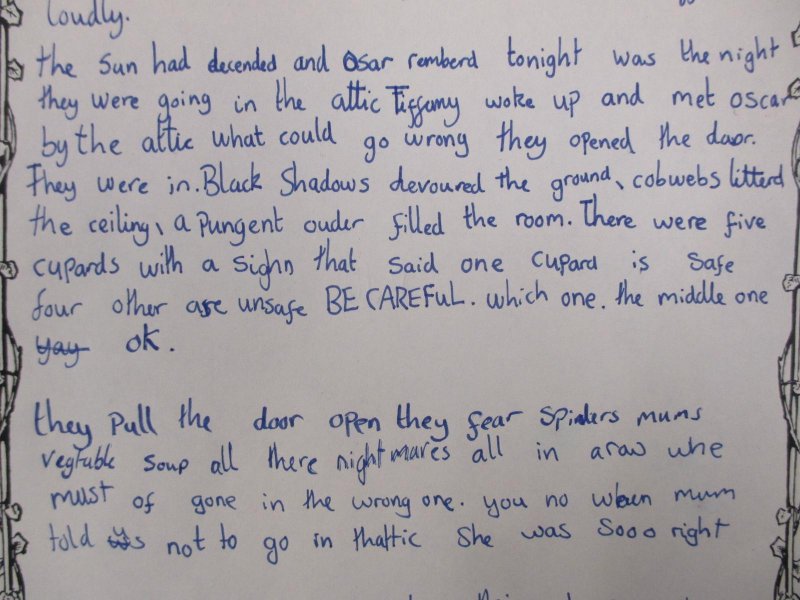 loudly.
the sun had decended and Osar remberd tonight was the night
they were going in the attic Tiffamy woke up and met oscar
by the attic what could go wrong they opened the door.
They were in. Black Shadows devoured the ground, cobwebs litterd
the ceiling, a Pungent ouder filled the room. There were five
cupards with a sighn that said one cupard is safe
four other are unsafe BE CAREFUL. which one. the middle one
yay ok.
they pull the door open they fear spiders mums
vegtable soup all there nightmares all in a row whe
must of gone in the wrong one. you no when mum
told us not to go in thattic She was Sooo right